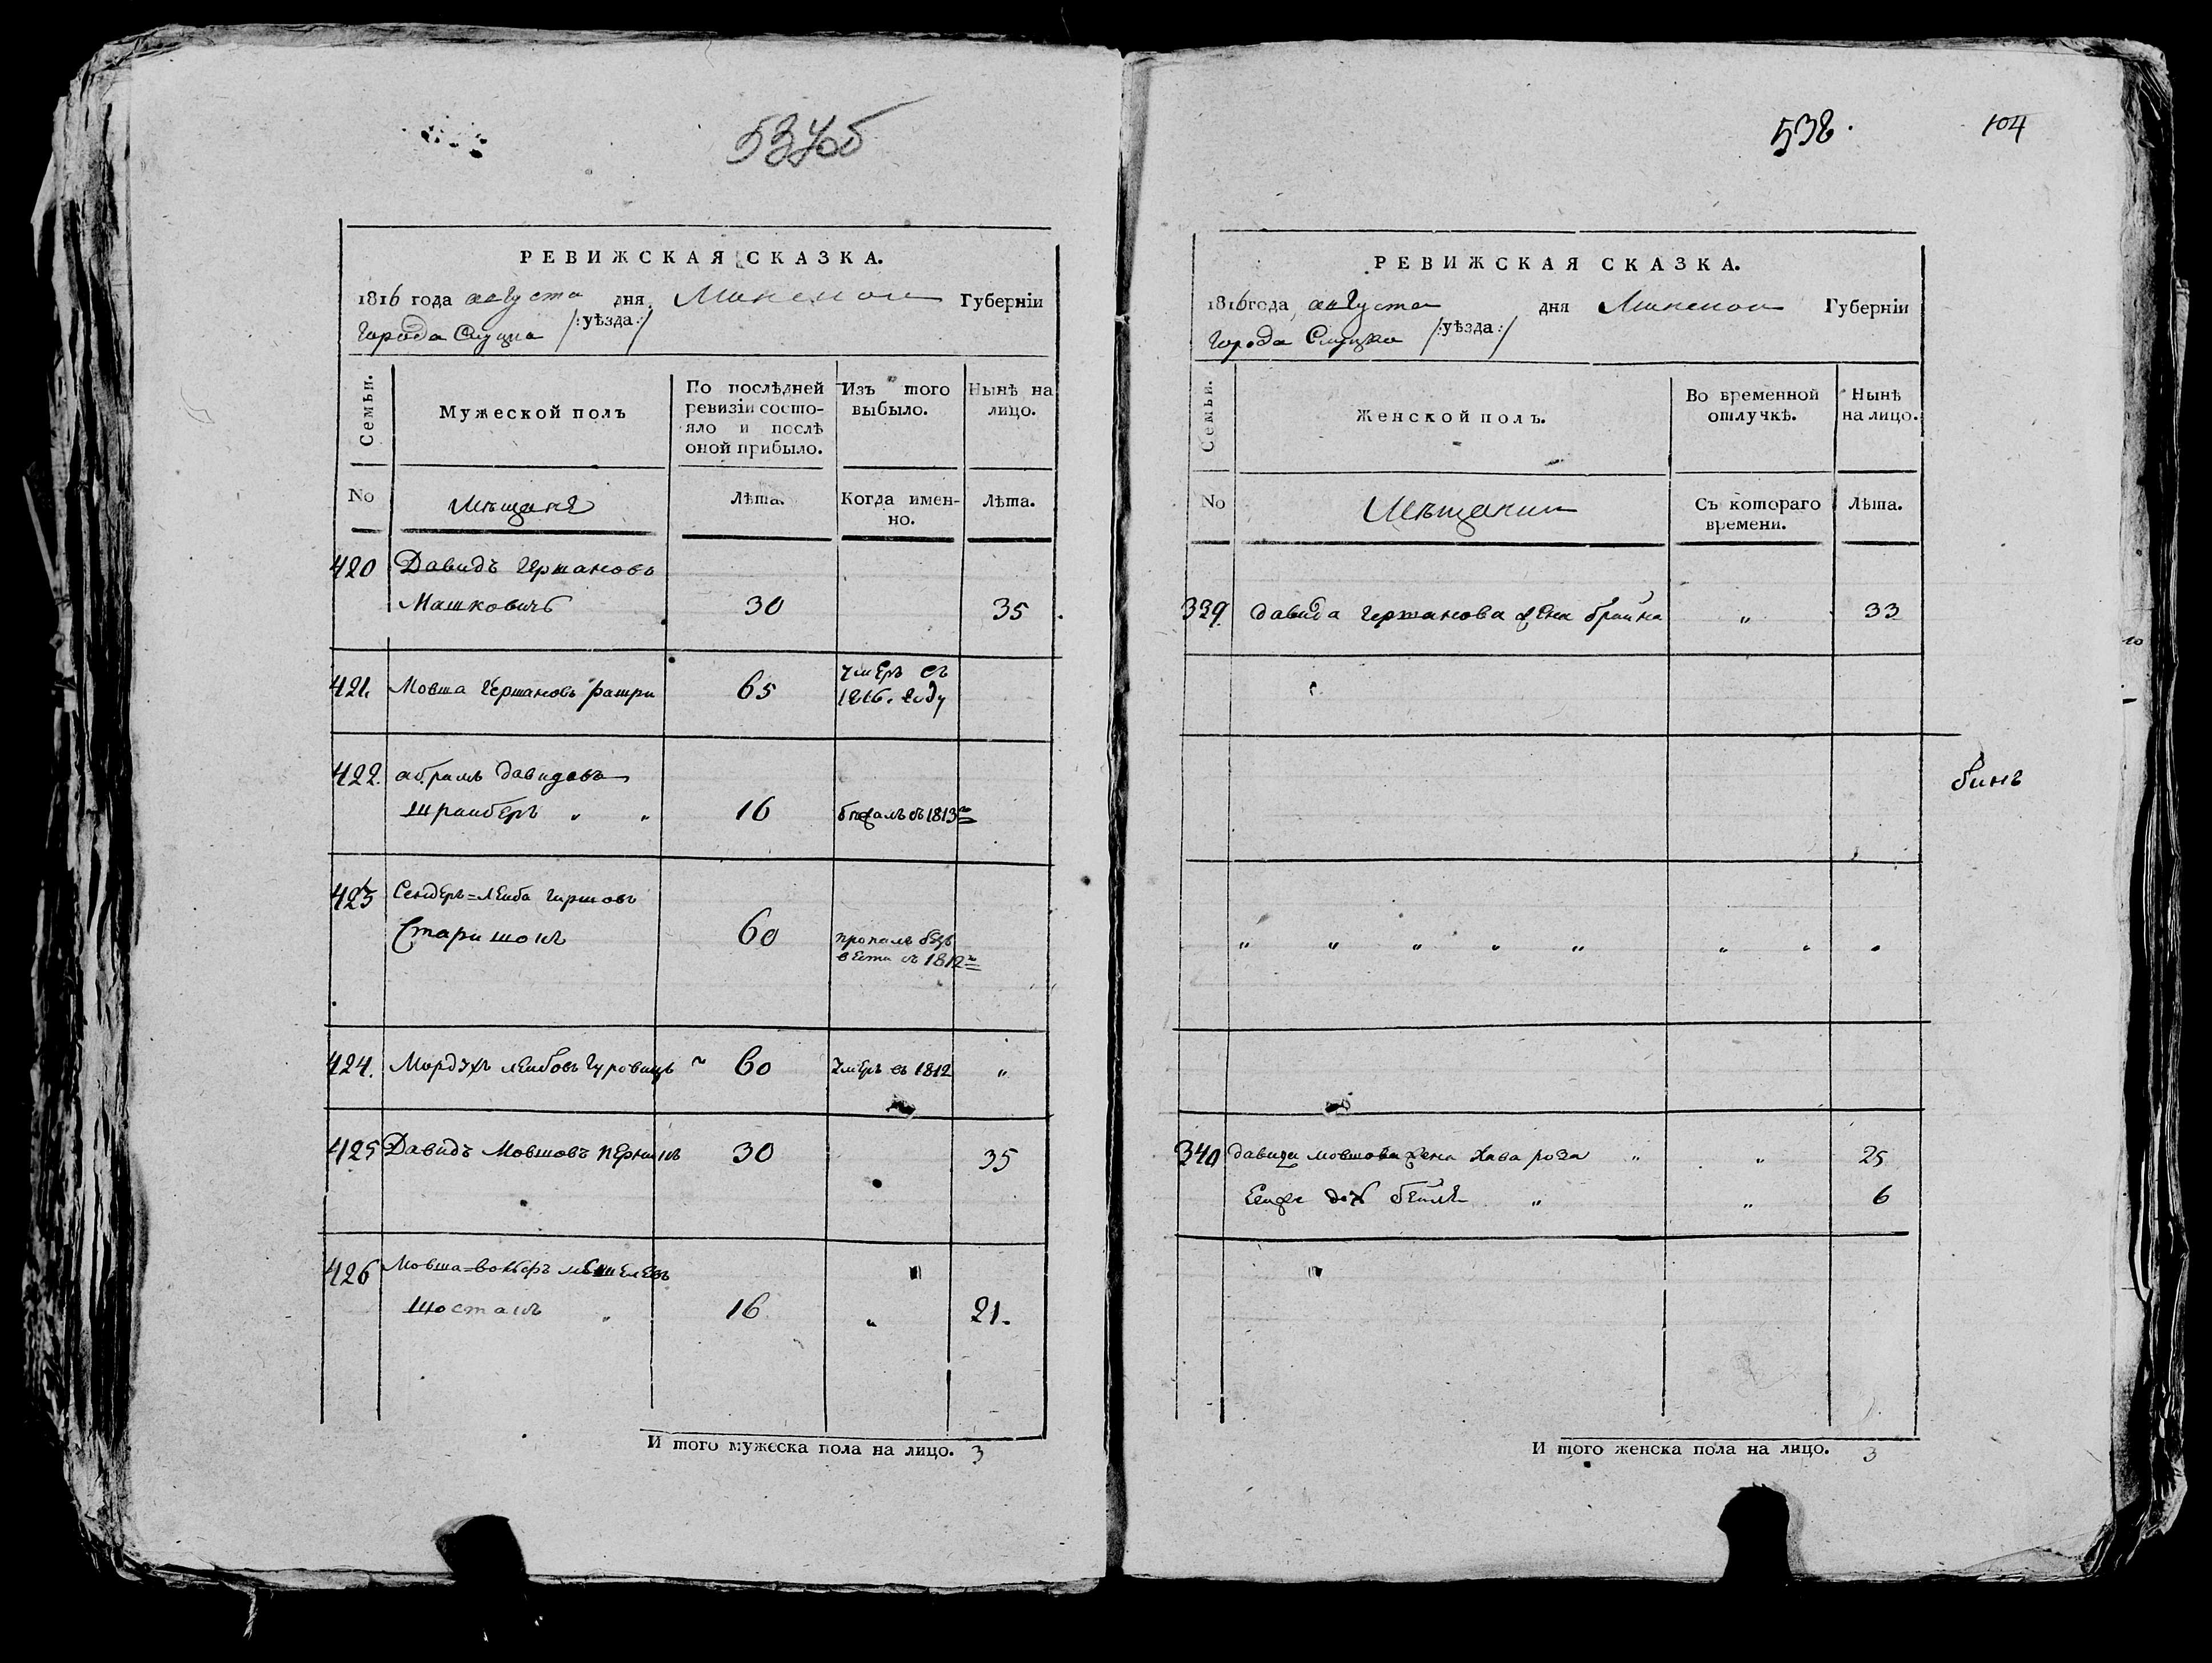 537об
РЕВИЖСКАЯ СКАЗКА.
1816 года августа дня Минской Губерніи
города Слуцка /:уѣзда:/
Семьи.
Мужеской полъ
По послѣдней ревизіи состо-
яло и послѣ
оной прибыло.
Изъ того выбыло.
Нынѣ на лицо.
No
мѣщане
Лѣта.
Когда имен-
но.
Лѣта.
420 Давидъ Гершановъ
Машковичъ 30 35
421. Мовша Гершановъ 65 умеръ въ
1816. году
422. абрамъ давидовъ
Шрайберъ " " 16 бѣжалъ въ 1813го
423 Сендеръ=Лейба гиршовъ
Старишокъ 60 пропалъ безъ
вести въ 1812го
424. Мордухъ лейбовъ гуровицъ ~ 60 умеръ въ 1812 "
425 Давидъ Мовшовъ 30 35
426 Мовша=
Шостакъ " 16 " 21.
И того мужеска пола на лицо. 3
538.
104
РЕВИЖСКАЯ СКАЗКА.
1816 года, августа дня Минской Губерніи
города Слуцка /:уѣзда:/
Семьи.
Женской полъ.
Во временной
отлучкѣ.
Нынѣ
на лицо.
No
Мѣщанки
Съ котораго
времени.
Лѣта.
339. давида гершанова жена брайна " 33
" " " " " " " "
340 давида мовшова жена Хава роза " " 25
Ея же дочь бейля " " 6
И того женска пола на лицо. 3